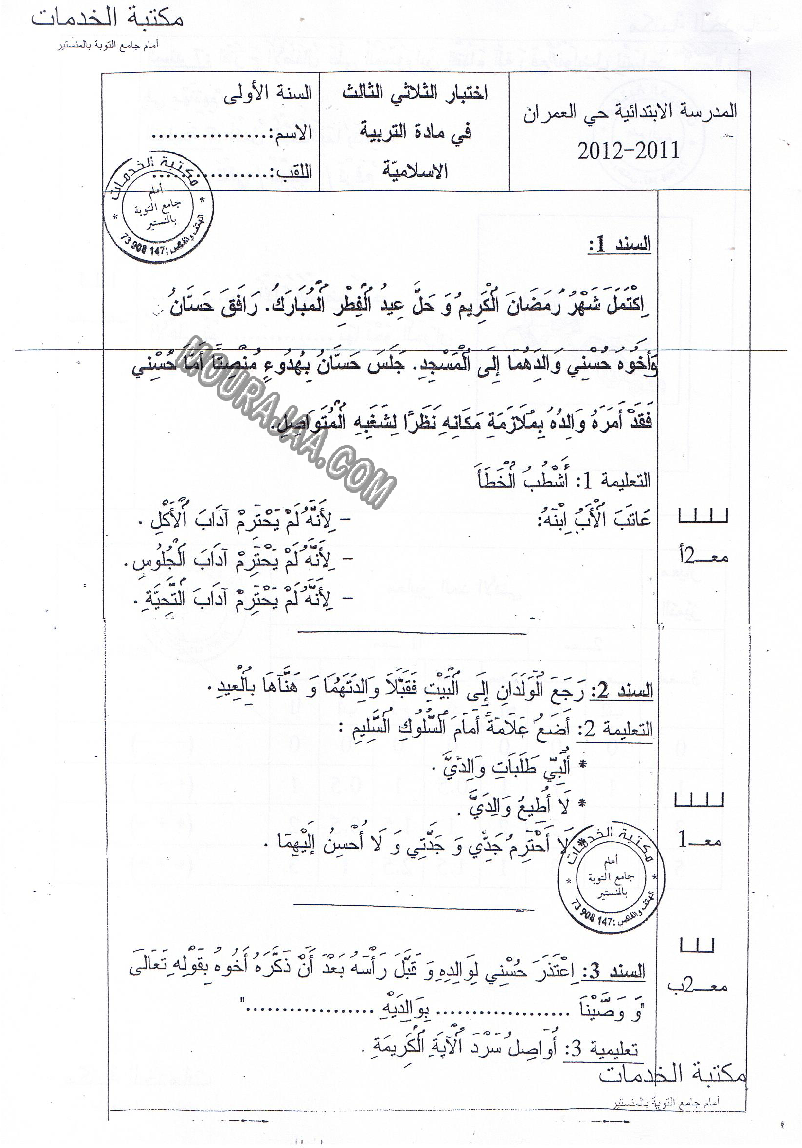 مكتبة الخدمات
أمام جامع التوبة بالمنستير
المدرسة الابتدائية حي العمران
2012-2011
اختبار الثلاثي الثالث
في مادة التربية
الاسلاميّة
السنة الأولى
الاسم:................
اللقب:................
مكتبة الخدمات
أمام
جامع التوبة
بالمنستير
73 908 147
السند 1:
اِكْتَمَلَ شَهْرُ رَمَضَانَ الْكَرِيمُ وَ حَلَّ عِيدُ الْفِطْرِ الْمُبَارَكُ. رَافَقَ حَسَّانُ
وَأَخُوهُ حُسْنِي وَالِدَهُمَا إِلَى الْمَسْجِدِ. جَلَسَ حَسَّانُ بِهُدُوءٍ مُنْصِتًا أَمَّا حُسْنِي
فَقَدْ أَمَرَهُ وَالِدُهُ بِمُلَازَمَةِ مَكَانِهِ نَظَرًا لِشَغَبِهِ الْمُتَوَاصِلِ.
MOURAJAA.COM
التعليمة 1: أَشْطُبُ الْخَطَأَ
عَاتَبَ الْأَبُ اِبْنَهُ:
- لِأَنَّهُ لَمْ يَحْتَرِمْ آدَابَ الْأَكْلِ .
- لِأَنَّهُ لَمْ يَحْتَرِمْ آدَابَ الْجُلُوسِ.
- لِأَنَّهُ لَمْ يَحْتَرِمْ آدَابَ التَّحِيَّةِ .
معـ2أ
السند 2: رَجَعَ الْوَلَدَانِ إِلَى الْبَيْتِ فَقَبَّلَا وَالِدَتَهُمَا وَ هَنَّآهَا بِالْعِيدِ .
التعليمة 2: أَضَعُ عَلَامَةً أَمَامَ السُّلُوكِ السَّلِيمِ :
* أُلَبِّي طَلَبَاتِ وَالِدَيَّ .
* لَا أُطِيعُ وَالِدَيَّ .
* لَا أَحْتَرِمُ جَدِّي وَ جَدَّتِي وَ لَا أُحْسِنُ إِلَيْهِمَا .
معـ1
مكتبة الخدمات
أمام
جامع التوبة
بالمنستير
73 908 147
السند 3: اِعْتَذَرَ حُسْنِي لِوَالِدِهِ وَ قَبَّلَ رَأْسَهُ بَعْدَ أَنْ ذَكَّرَهُ أَخُوهُ بِقَوْلِهِ تَعَالَى
"وَ وَصَّيْنَا .................. بِوَالِدَيْهِ .................."
تعليمية 3: أُوَاصِلُ سَرْدَ الْآيَةِ الْكَرِيمَةِ.
معـ2ب
مكتبة الخدمات
أمام جامع التوبة بالمنستير